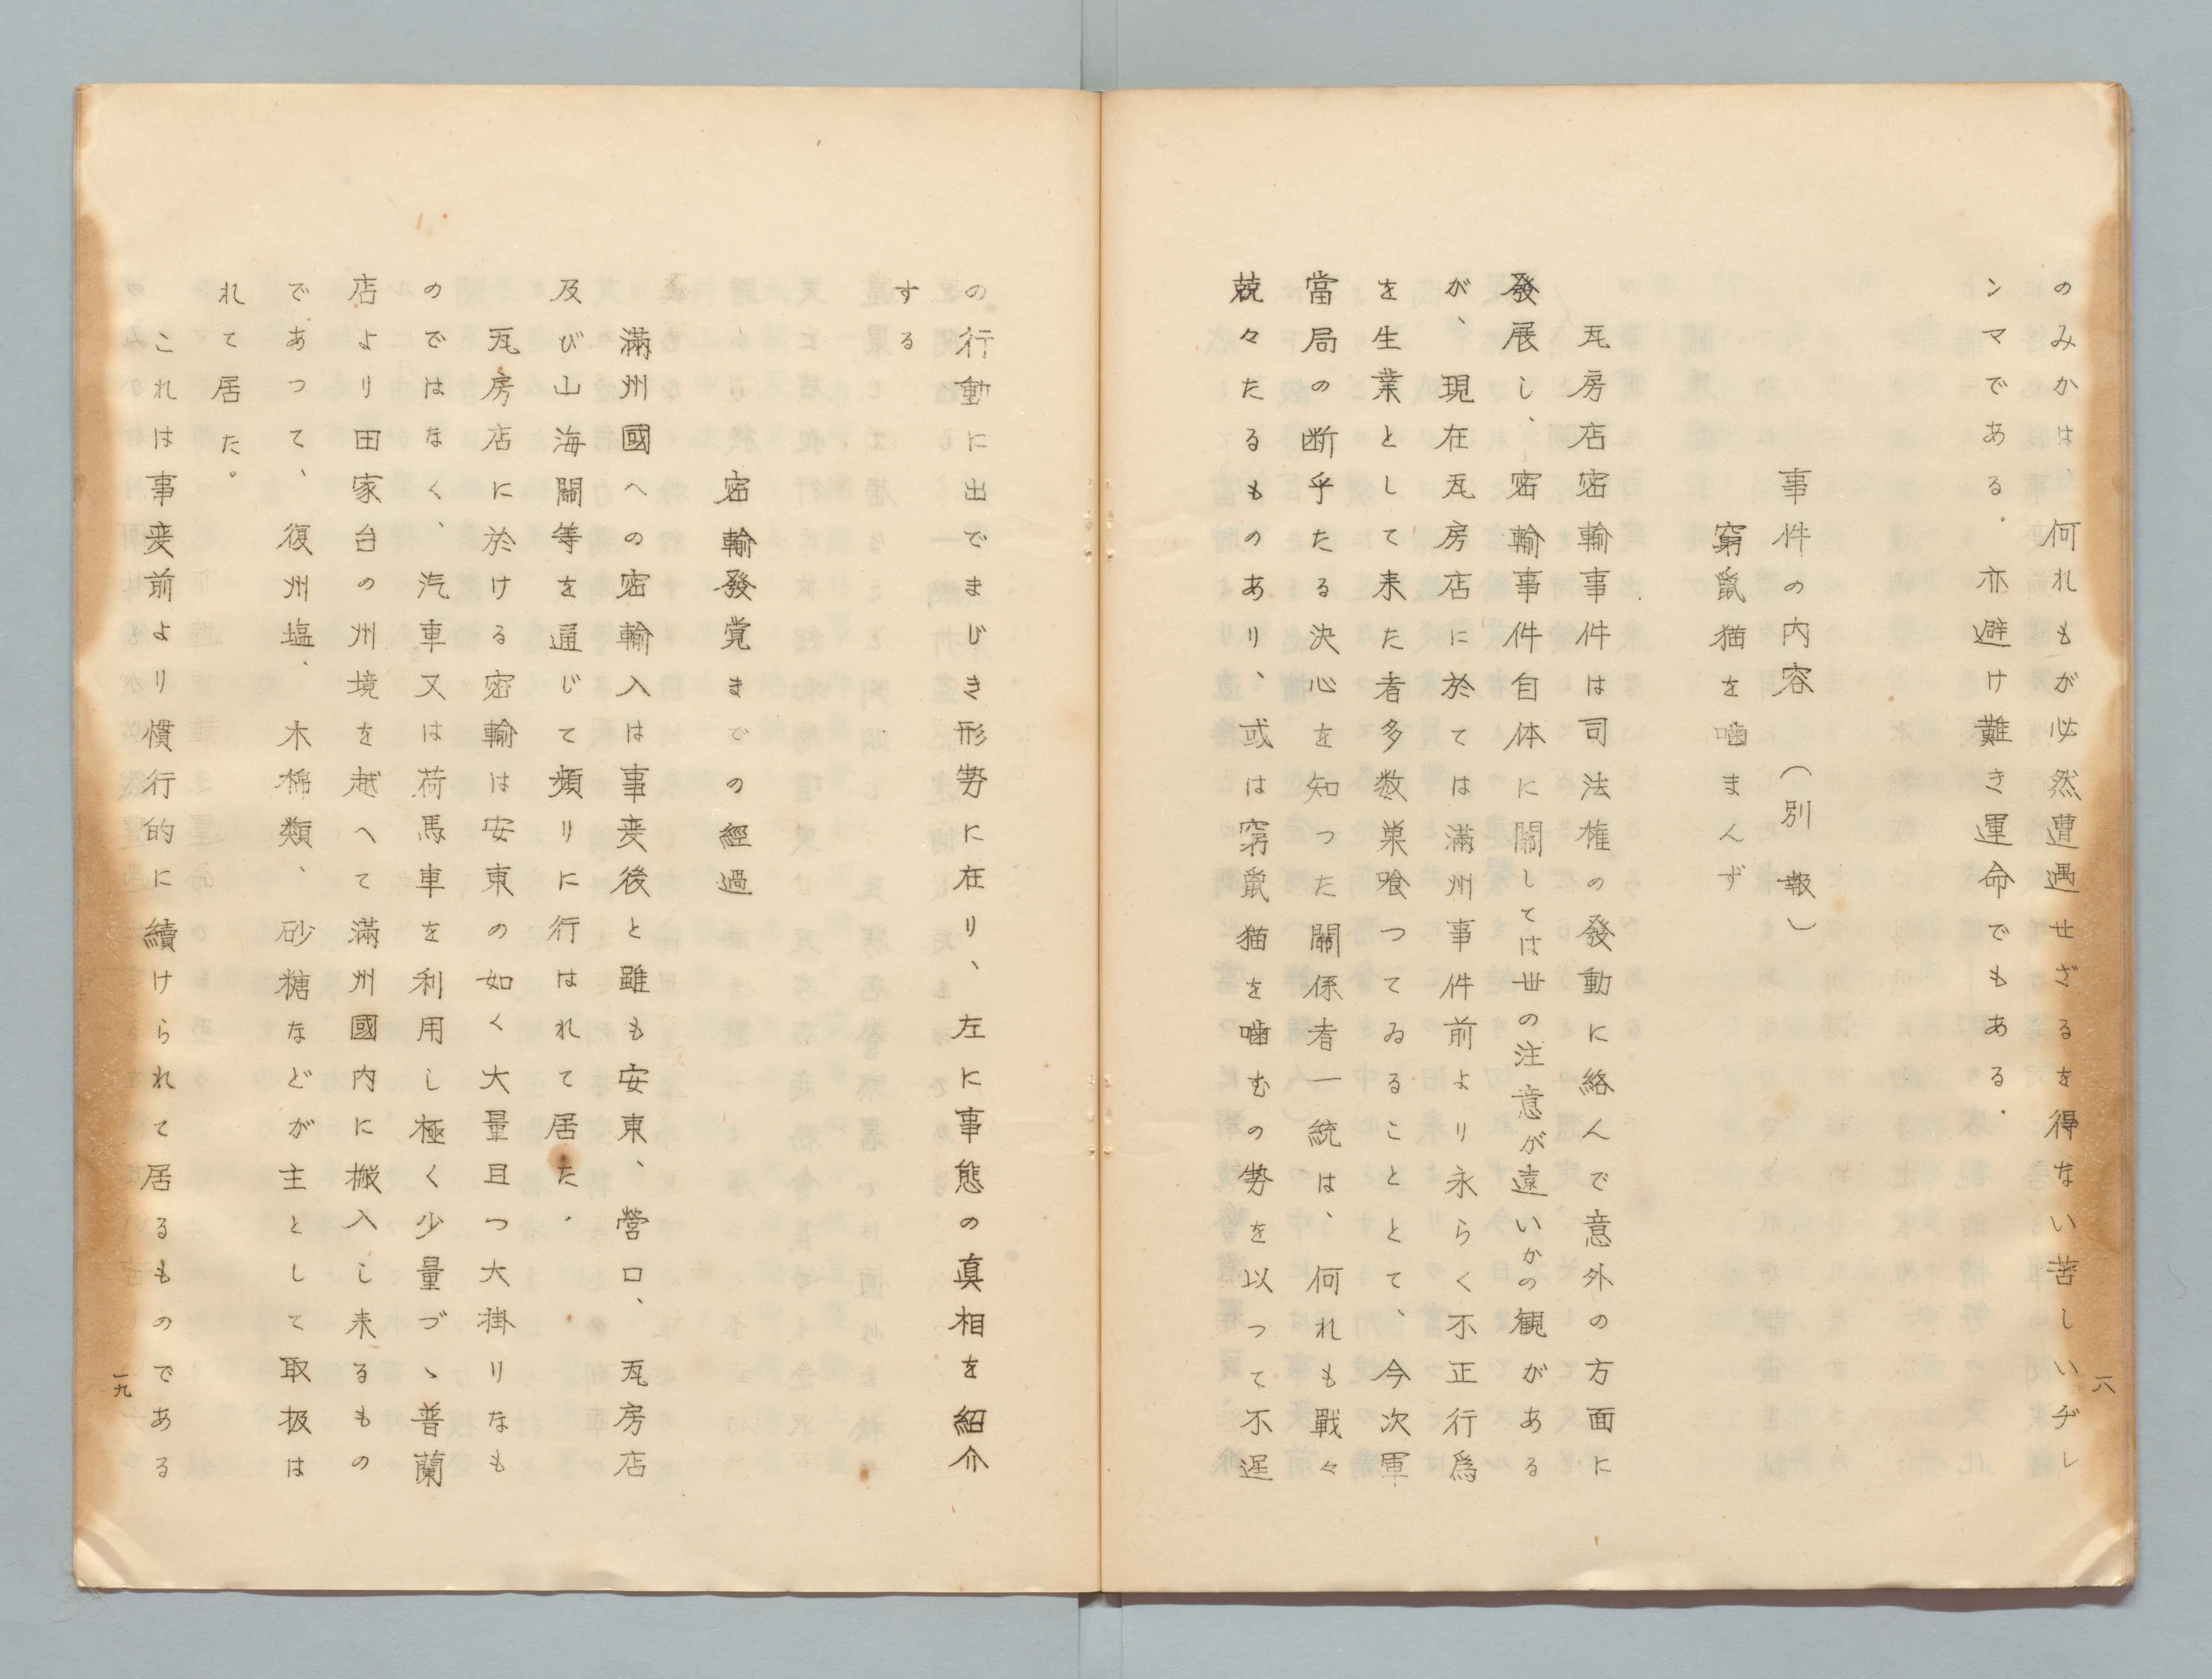 のみかは、何れもが必然遭遇せざるを得ない苦しいヂレ
ンマである．亦避け難き運命でもある．
事件の内容（別報）
窮鼠猫を噛まんず
瓦房店密輸事件は司法権の發動に絡んで意外の方面に
發展し、密輸事件自体に關しては世の注意が遠いかの観がある
が、現在瓦房店に於ては滿州事件前より永らく不正行爲
を生業として来た者多数巣喰つてゐることとて、今次軍
當局の断乎たる決心を知つた關係者一統は、何れも戰々
兢々たるものあり、或は窮鼠猫を噛むの勢を以つて不逞
六
の行動に出でまじき形勢に在り、左に事態の真相を紹介
する
密輸發覚までの經過
滿州國への密輸入は事変後と雖も安東、營口、瓦房店
及び山海關等を通じて頻りに行はれて居た．
瓦房店に於ける密輸は安東の如く大量且つ大掛りなも
のではなく、汽車又は荷馬車を利用し極く少量づゝ普蘭
店より田家台の州境を越へて滿州國内に搬入し来るもの
であつて、復州塩、木棉類、砂糖などが主として取扱は
れて居た。
これは事変前より慣行的に續けられて居るものである
一九